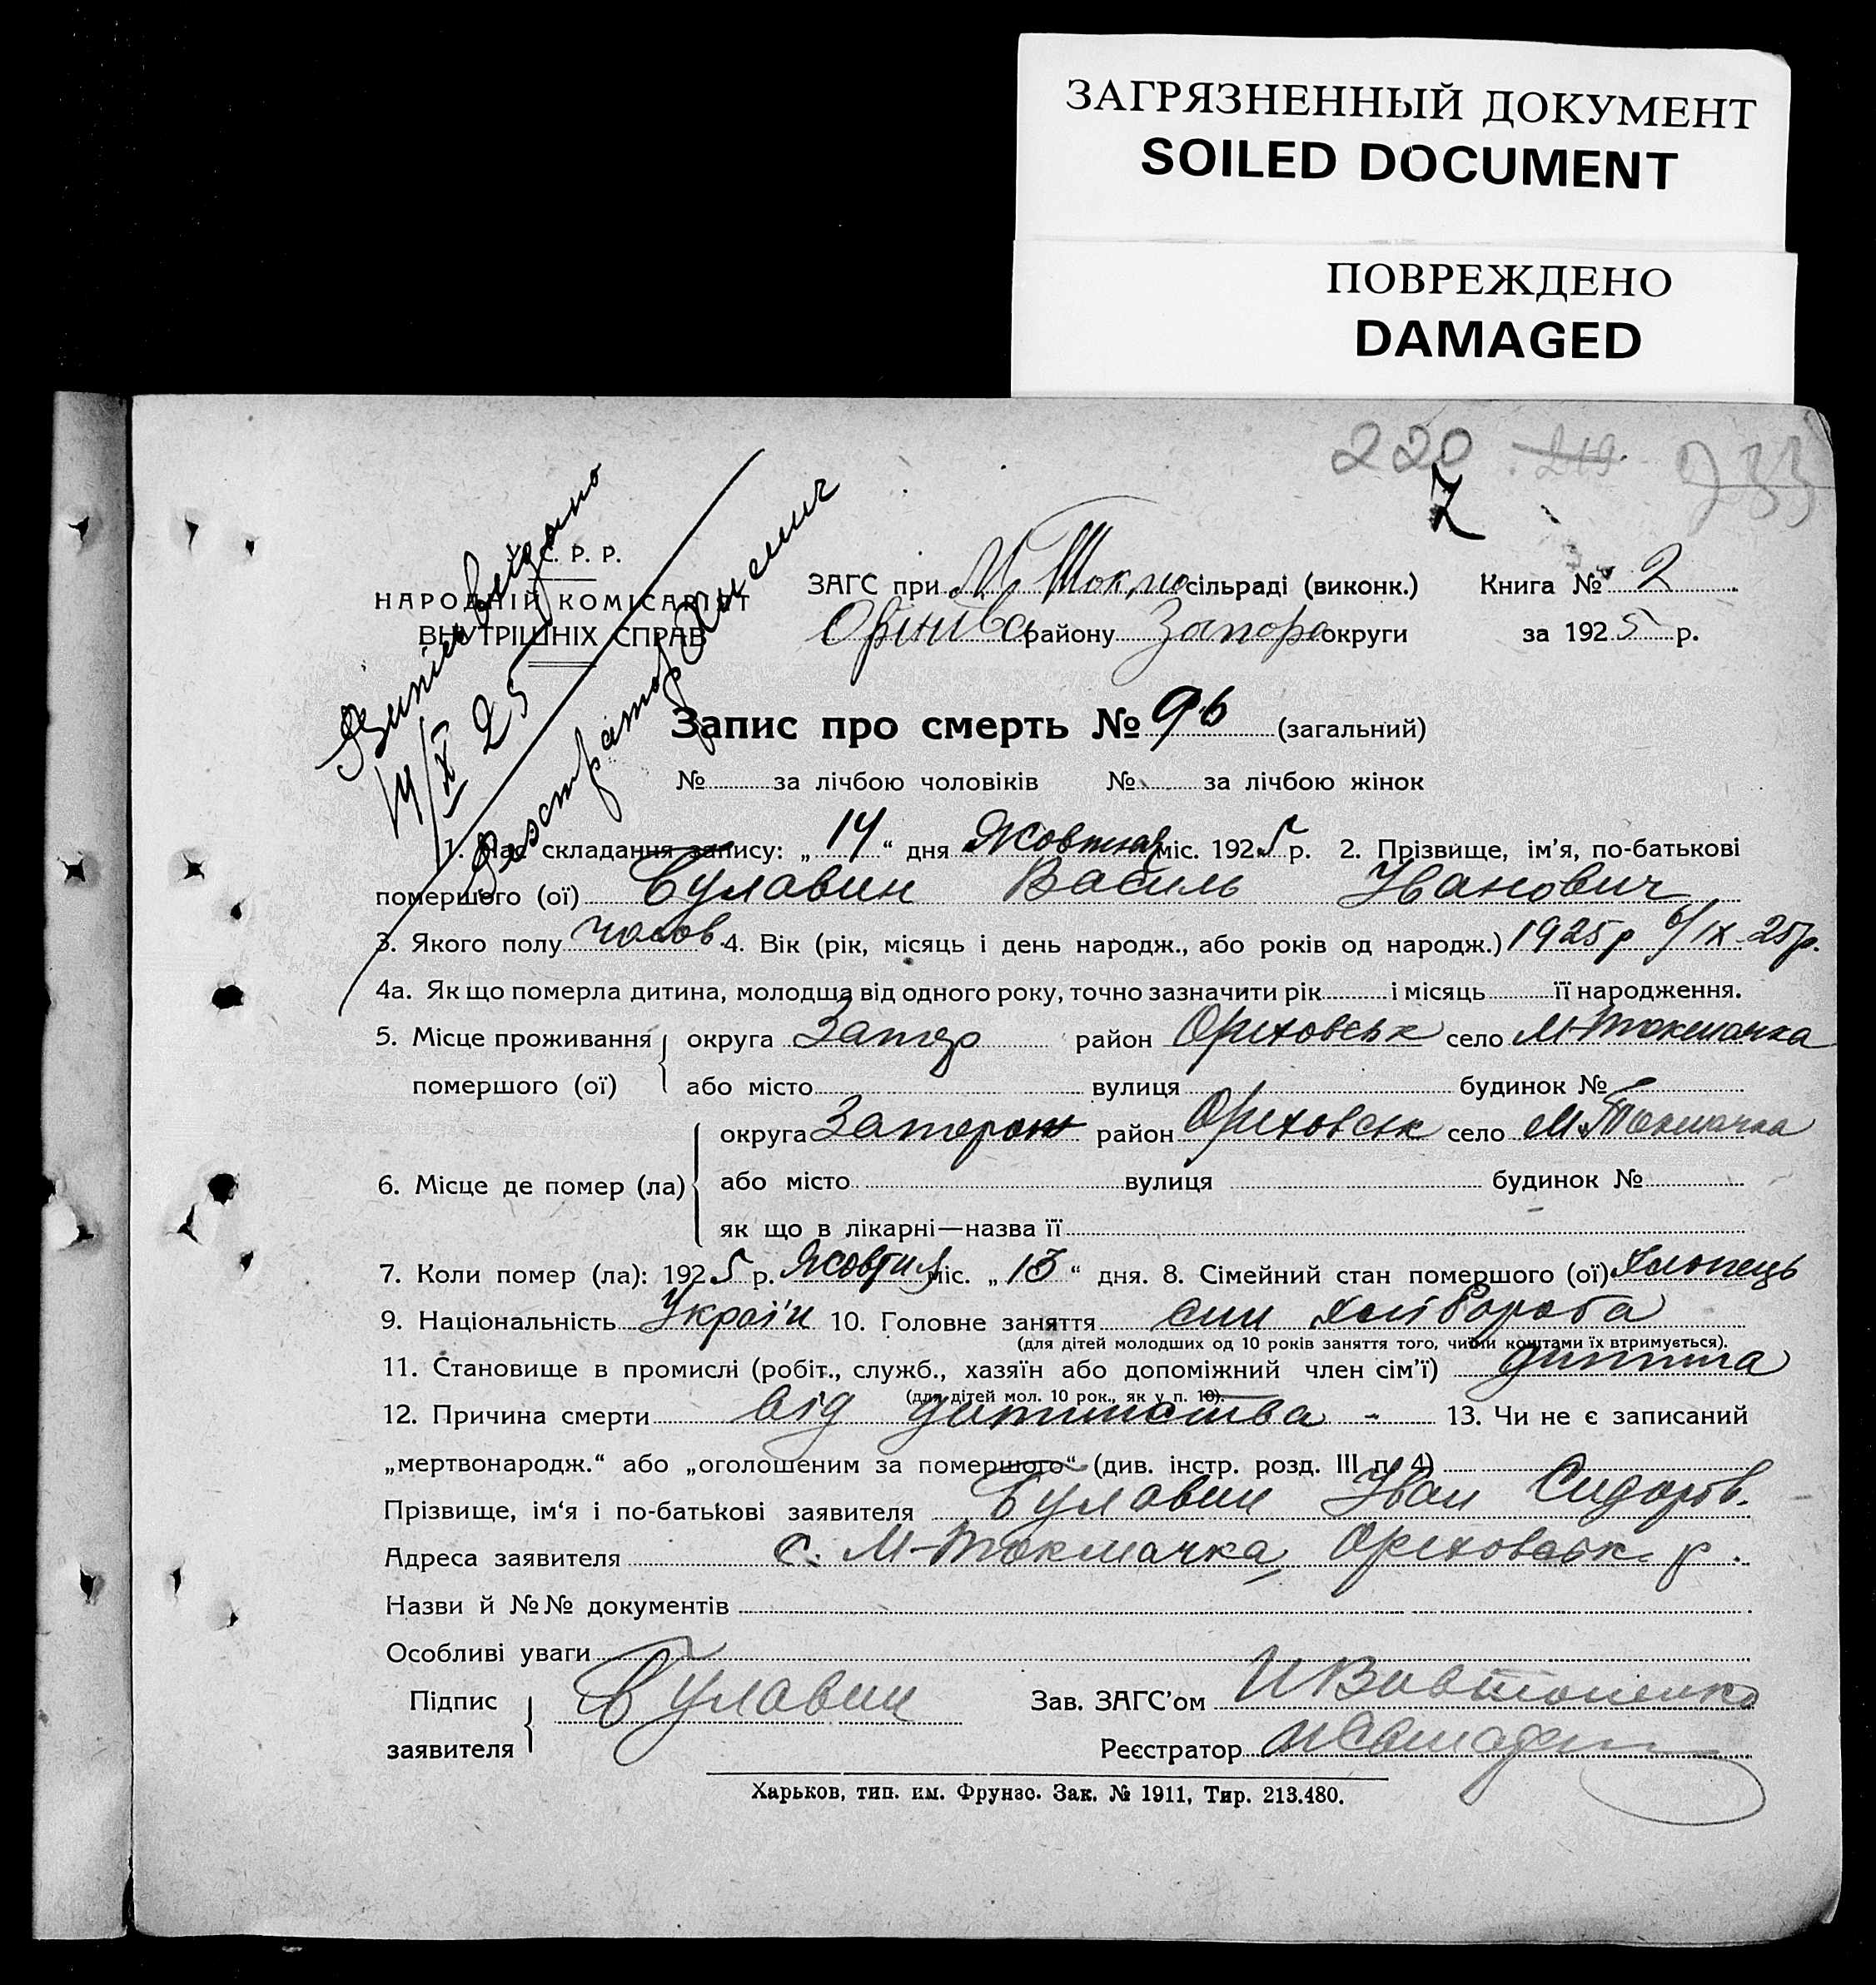 ЗАГРЯЗНЕННЫЙ ДОКУМЕНТ
SOILED DOCUMENT
ПОВРЕЖДЕНО
DAMAGED
220 219 933
7
Випис видано
14/X 25
У. С. Р. Р.
НАРОДНІЙ КОМІСАРІЯТ
ВНУТРІШНІХ СПРАВ
ЗАГС при М Токм сільраді (виконк.) Книга № 2
району Запоро округи за 1925 р.
Запис про смерть № 96 (загальний)
№ за лічбою чоловіків № за лічбою жінок
1. Час складання запису: „14“ дня Жовтня міс. 1925 р. 2. Прізвище, ім'я, по-батькові
помершого (ої) Булавин Василь Іванович
3. Якого полу 4. Вік (рік, місяць і день народж., або років од народж.) 1925 р 6/IX 25 р.
4а. Як що померла дитина, молодща від одного року, точно зазначити рік і місяць її народження.
5. Місце проживання помершого (ої) округа Запор район Оріховськ село М-Токмачка
або місто вулиця будинок №
6. Місце де помер (ла) округа Запорож район Оріховськ село М.Токмачка
або місто вулиця будинок №
як що в лікарні—назва її
7. Коли помер (ла): 1925 р. Жовтня міс. „13“ дня. 8. Сімейний стан помершого (ої) Хлопець
9. Національність Україн 10. Головне заняття син хлібороба
(для дітей молодших од 10 років заняття того, чиїми коштами їх втримується).
11. Становище в промислі (робіт., служб., хазяїн або допоміжний член сім'ї) дитина
(для дітей мол. 10 рок., як у п. 10).
12. Причина смерти від дитинства - 13. Чи не є записаний
„мертвонародж.“ або „оголошеним за помершого“ (див. інстр. розд. III п. 4)
Прізвище, ім'я і по-батькові заявителя Булавин Іван Сидоров.
Адреса заявителя с. М-Токмачка Оріховськ р.
Назви й №№ документів
Особливі уваги
Підпис заявителя Булавин Зав. ЗАГС'ом
Реєстратор
Харьков, тип. им. Фрунзе. Зак. № 1911, Тир. 213.480.